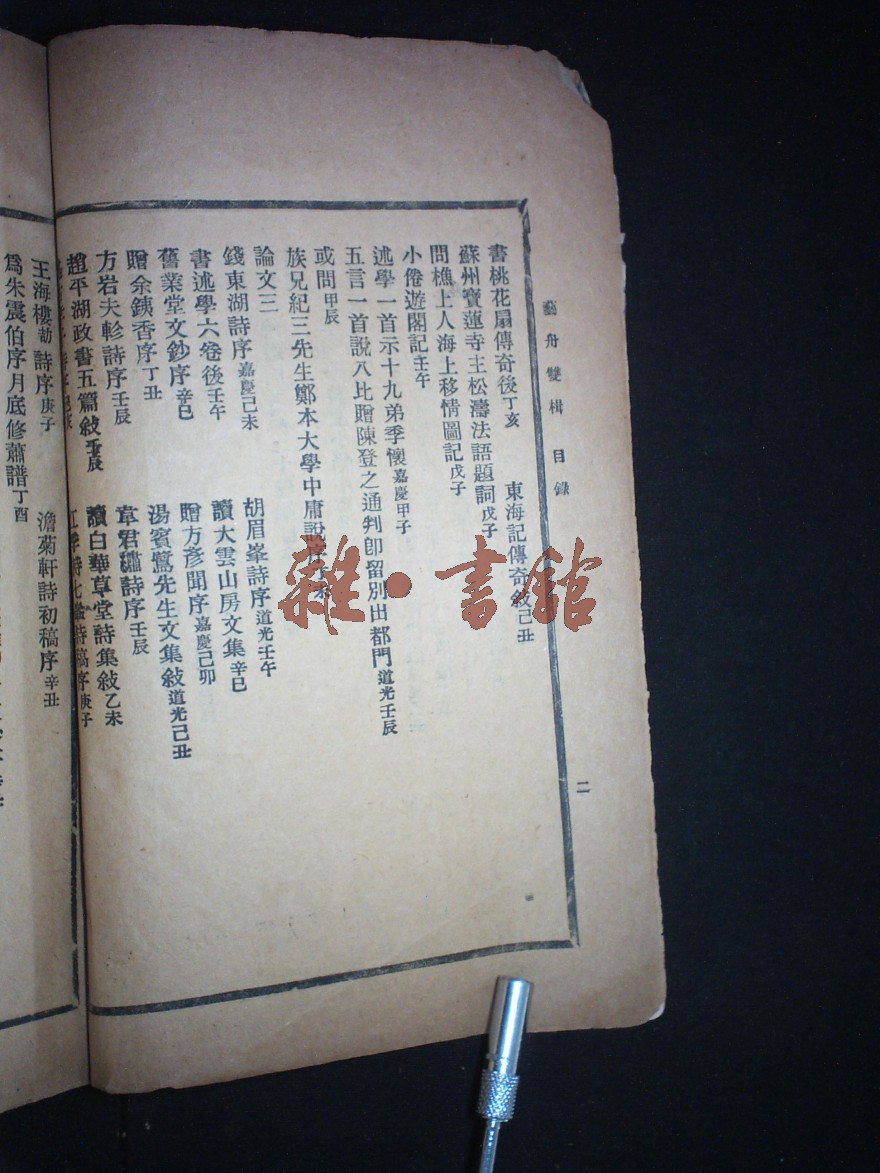 藝舟雙楫 目錄 二
書桃花扇傳奇後丁亥 東海記傳奇敍己丑
蘇州寶蓮寺主松濤法語題詞戊子
問樵上人海上移情圖記戊子
小倦遊閣記壬午
述學一首示十九弟季懷嘉慶甲子
五言一首說八比贈陳登之通判卽留別出都門道光壬辰
或問甲辰
族兄紀三先生鄭本大學中庸說序
論文三
錢東湖詩序嘉慶己未 胡眉峯詩序道光壬午
書述學六卷後壬午 讀大雲山房文集辛巳
舊業堂文鈔序辛巳 贈方彥聞序嘉慶己卯
贈余銕香序丁丑 湯賓鷺先生文集敍道光己丑
方岩夫軫詩序壬辰 章君繡詩序壬辰
趙平湖政書五篇敍壬辰 讀白華草堂詩集敍乙未
詩稿序庚子
王海樓劼詩序庚子 澹菊軒詩初稿序辛丑
爲朱震伯序月底修蕭譜丁酉
雜·書館